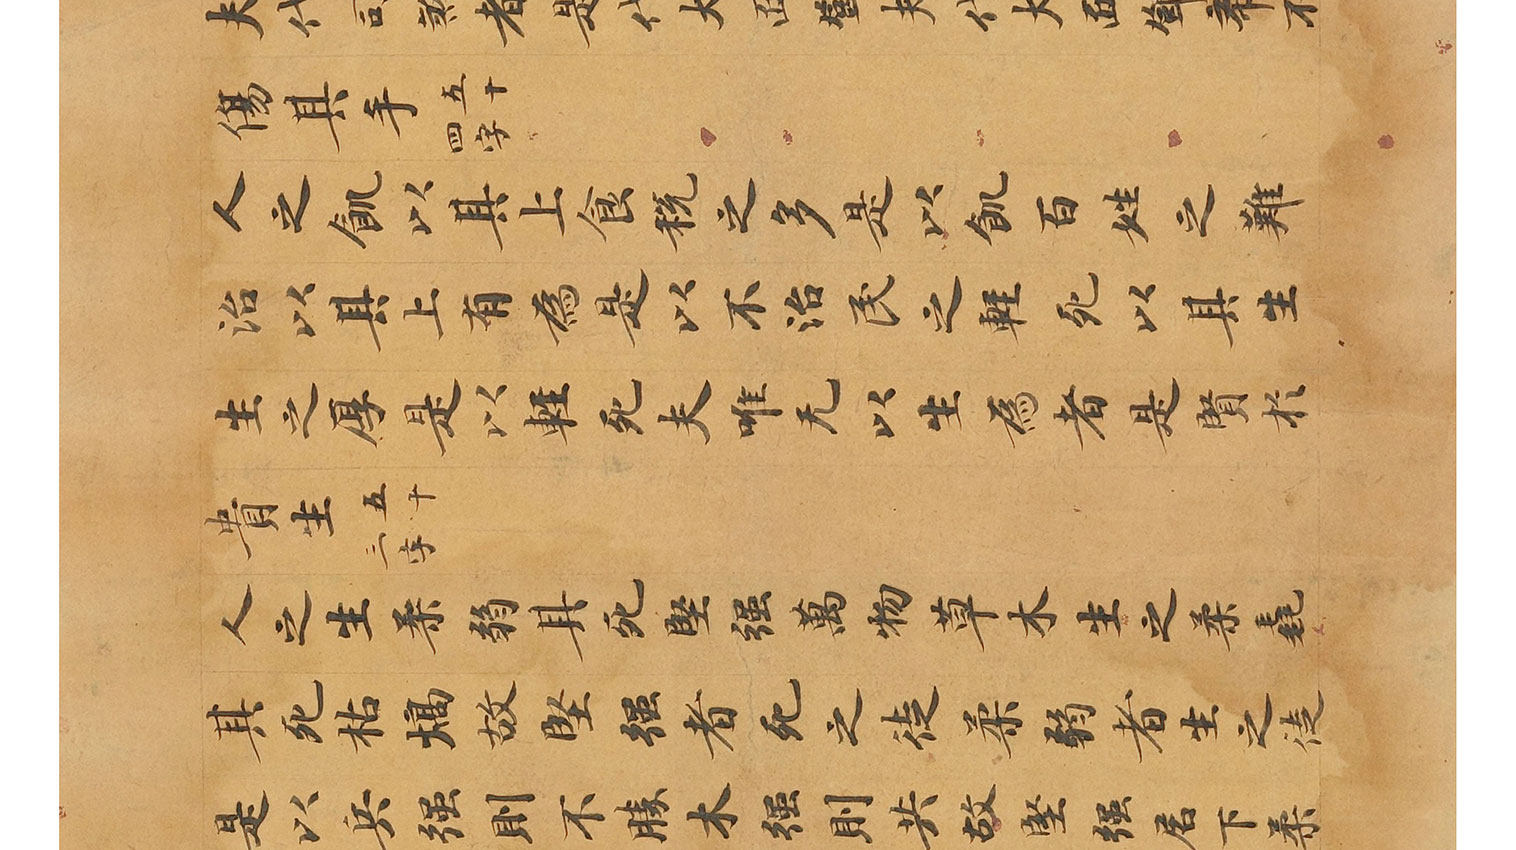 夫代司煞者是代大匠斵夫代大匠斵希不
傷其手 五十四字
人之飢以其上食稅之多是以飢百姓之難
治以其上有為是以不治民之輕死以其生
生之厚是以輕死夫唯无以生為者是賢於
貴生 五十三字
人之生柔弱其死堅强萬物草木生之柔毳
其死枯熇故堅强者死之徒柔弱者生之徒
是以兵强則不勝木强則共故堅强居下柔